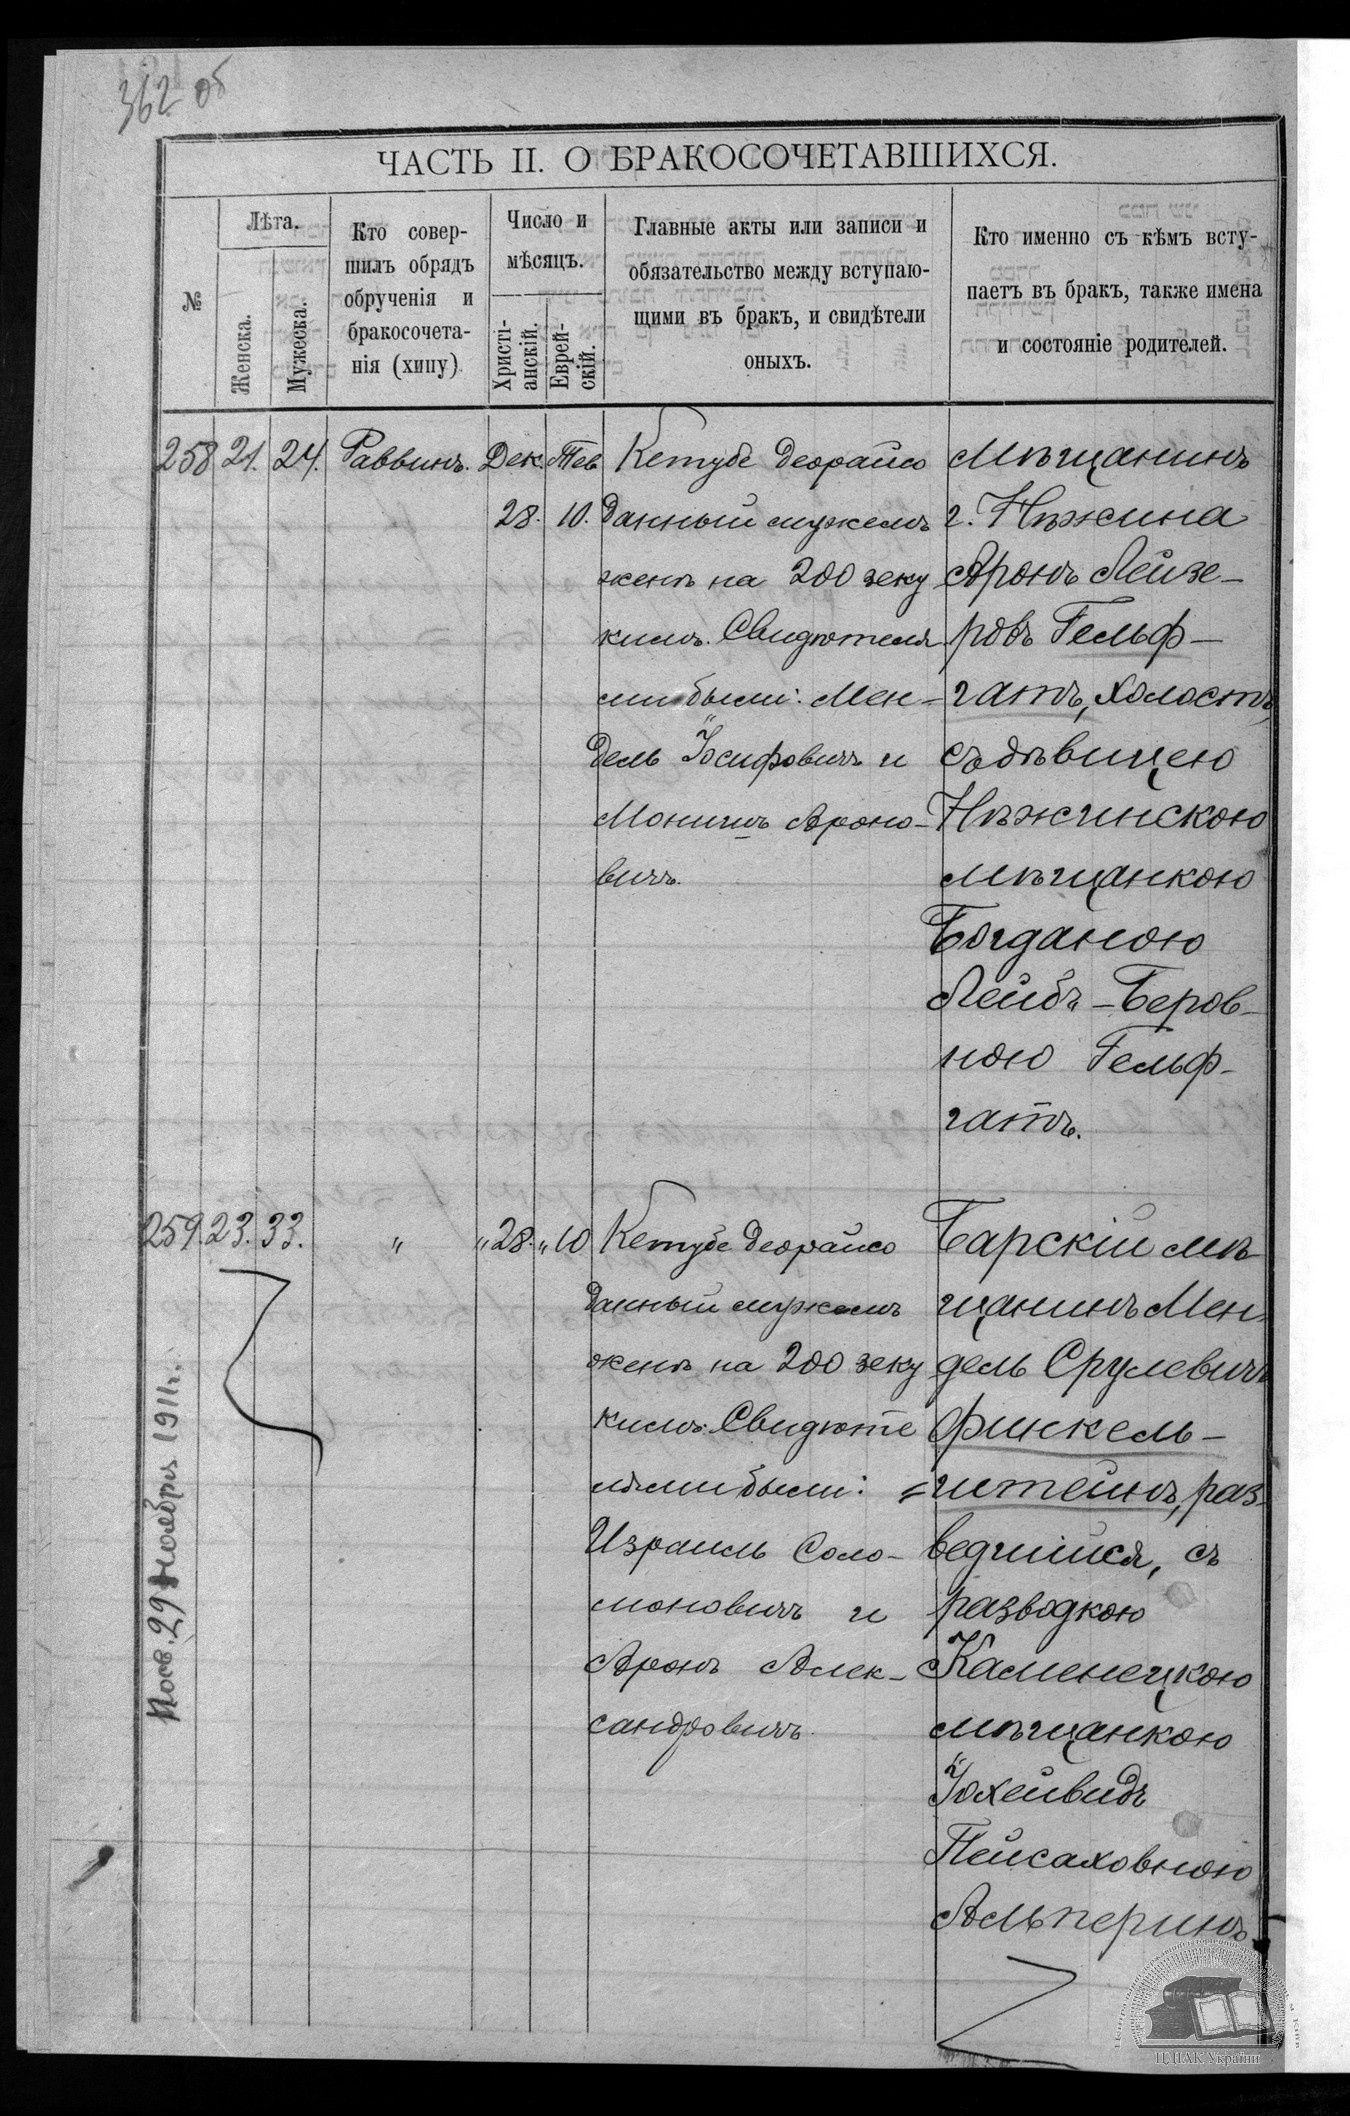 362 об
ЧАСТЬ II. О БРАКОСОЧЕТАВШИХСЯ.
№
Лѣта.
Женска.
Мужеска.
Кто совер-
шилъ обрядъ
обрученія и
бракосочета-
нія (хипу)
Число и
мѣсяцъ.
Христі-
анскій.
Еврей-
скій.
Главные акты или записи и
обязательство между вступаю-
щими въ бракъ, и свидѣтели
оныхъ.
Кто именно съ кѣмъ всту-
паетъ въ бракъ, также имена
и состояніе родителей.
258 21. 24. Раввинъ. Дек. Тев
28. 10.
Кетубе деорайсо
данный мужемъ
женѣ на 200 зеку
кимъ. Свидѣтеля
ми были: Мен-
дель Іосифовичъ и
Монишъ Ароно-
вичъ.
Мѣщанинъ
г. Нѣжина
Аронъ Лейзе-
ровъ Гельф-
гатъ, холостъ,
съ дѣвицею
Нѣжинскою
мѣщанкою
Богданою
Лейбъ-Беров-
ною Гельф-
гатъ.
259. 23. 33. " " 28. " 10
Кетубе деорайсо
данный мужемъ
женѣ на 200 зеку
кимъ. Свидѣте
лями были:
Израиль Соло-
моновичъ и
Аронъ Алек-
сандровичъ
Барскій мѣ
щанинъ Мен-
дель Срулевичъ
Финкель-
штейнъ, раз-
ведшійся, съ
разводкою
Каменецкою
мѣщанкою
Іохейвидъ
Пейсаховною
Альперинъ
29 Ноября 1911 г.
ЦДІАК України